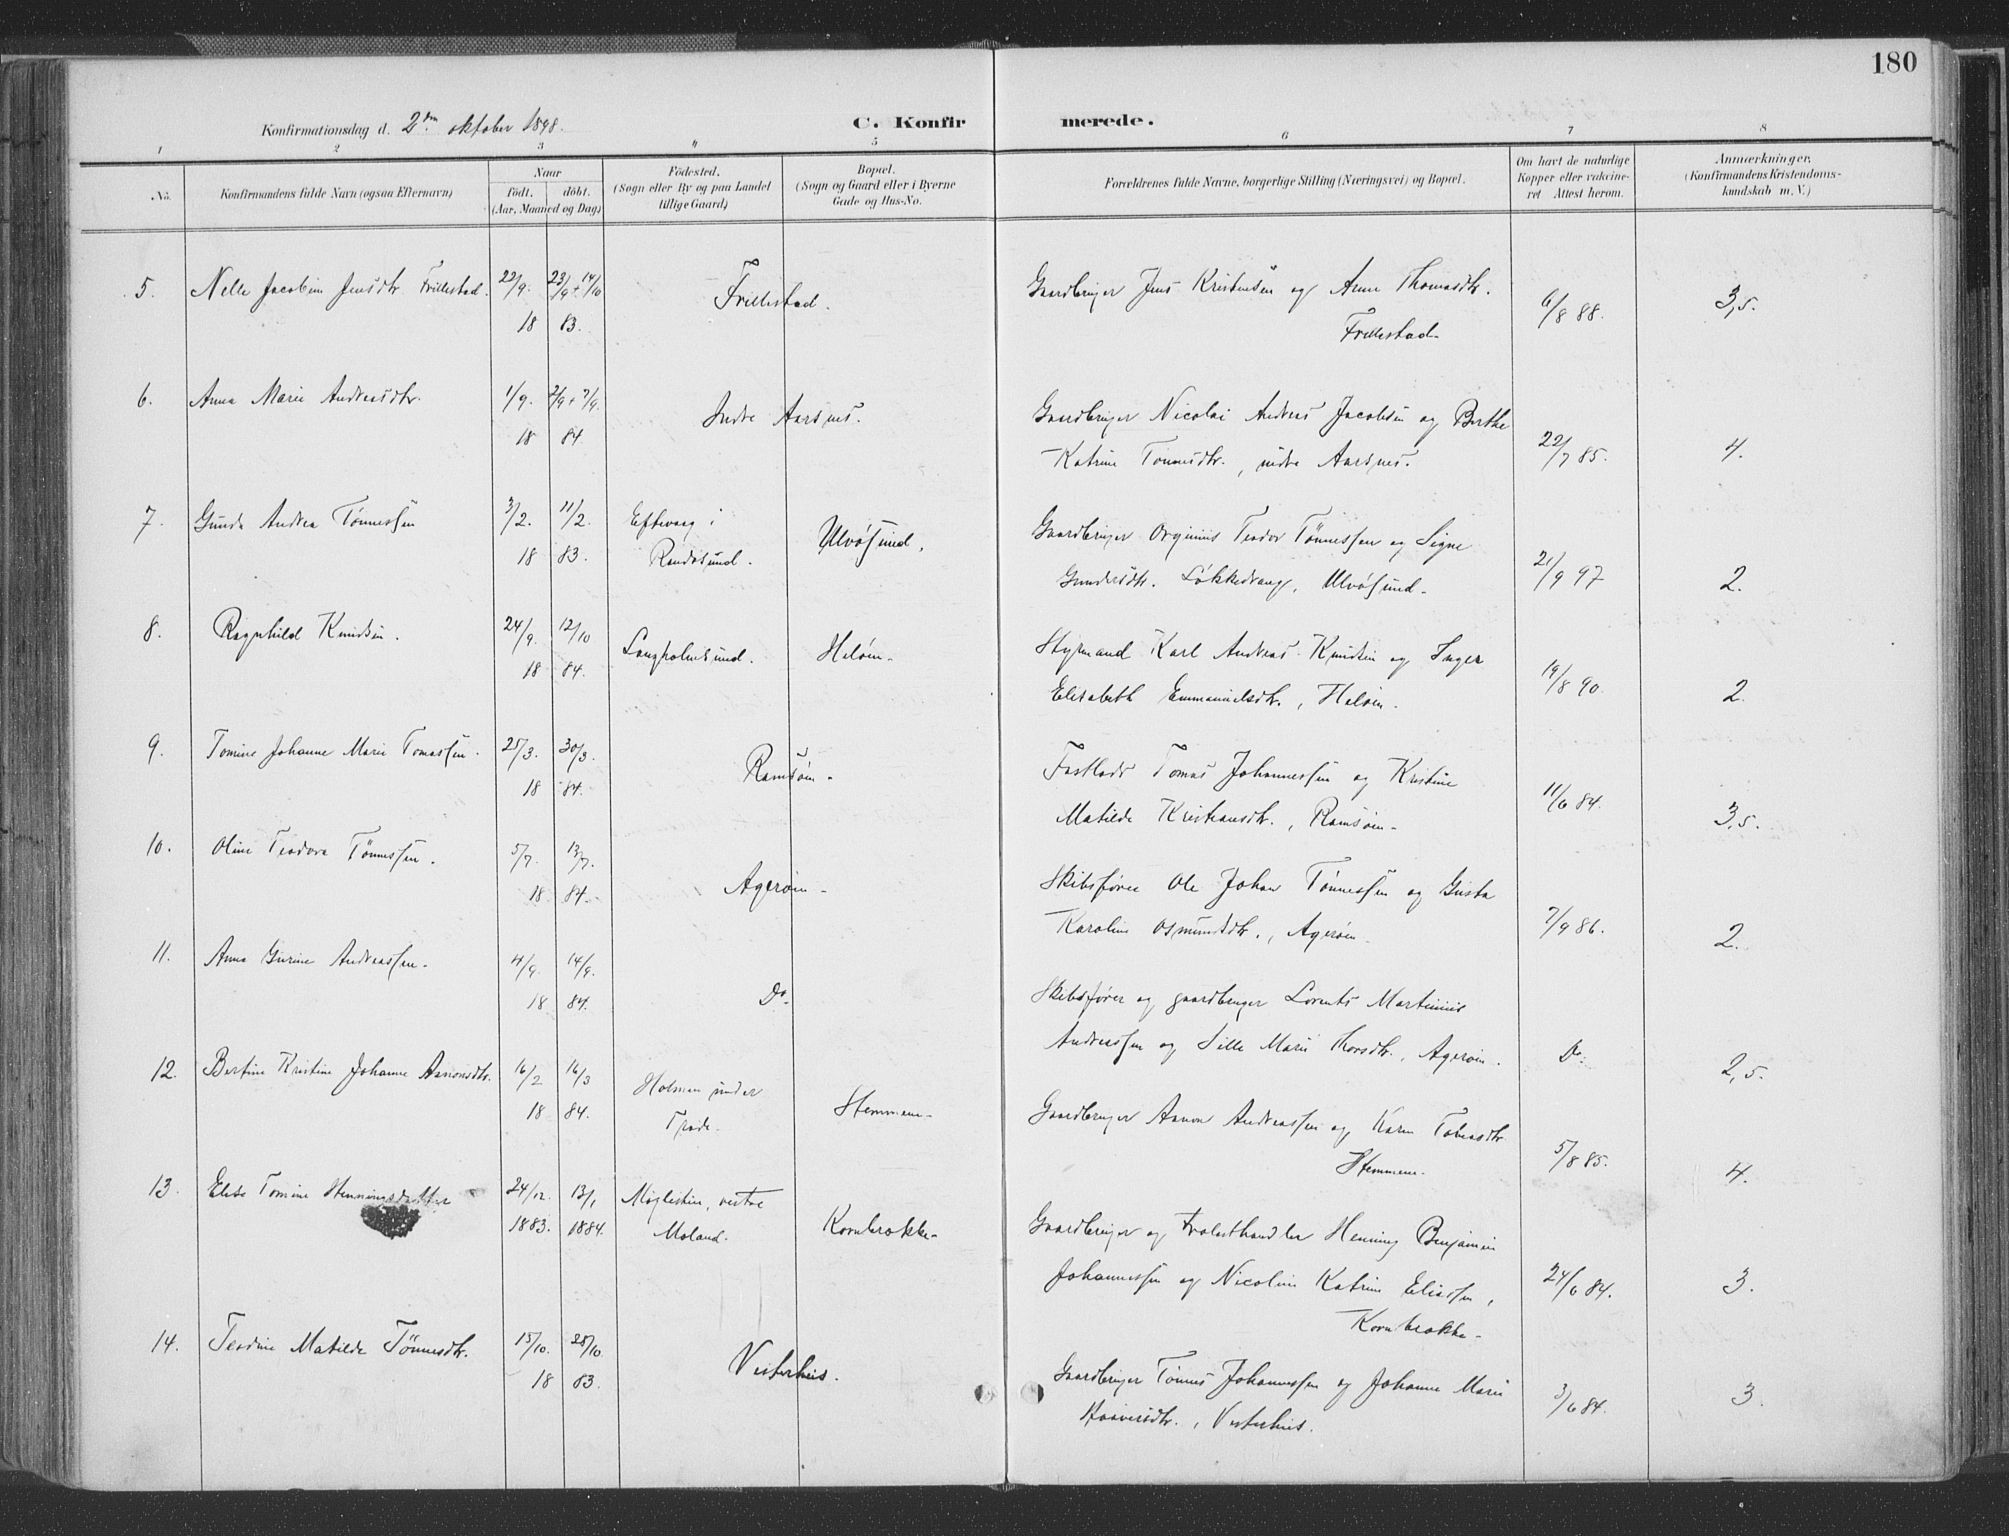 180
Konfirmationsdag d. 2den oktober 1898. C. Konfirmerede.
1 2 3 4 5 6 7 8
No.
Konfirmandens fulde Navn (ogsaa Efternavn)
Naar
födt. döbt.
(Aar, Maaned og Dag)
Födested.
(Sogn eller By og paa Landet
tillige Gaard)
Bopæl.
(Sogn og Gaard eller i Byerne
Gade og Hus-No.
Forældrenes fulde Navne, borgerlige Stilling (Næringsvei) og Bopæl.
Om havt de naturlige
Kopper eller vakcine-
ret Attest herom.
Anmærkninger.
(Konfirmandens Kristendoms-
kundskab m. V.)
5. Nelle Jacobine Jensdtr. Frillestad. 22/9. 23/9 + 14/10 Frillestad. Gaardbruger Jens Kristensen og Anne Thomasdtr. 6/8 88. 3,5.
18 83. Frillestad.
6. Anna Marie Andreasdtr. 1/9. 2/9 + 7/9. Indre Aarsnes. Gaardbruger Nicolai Andreas Jacobsen og Berthe 22/7 85. 4.
18 84 Katrine Tonnesdtr., indre Aarsnes.
7. Gunda Andrea Tönnessen 3/2. 11/2. Eftevaag i Ulvösund. Gaardbruger Orginius Teodor Tönnessen og Signe 21/9 97 2.
18 83. Randösund. Gundersdtr. Lökkedvang, Ulvösund.
8. Ragnhild Knudsen. 24/9. 12/10 Langholmsund. Helöen. Styrmand Karl Andreas Knudsen og Inger 19/8 90. 2.
18 84. Elisabeth Emmanuelsdtr., Helöen.
9. Tomine Johanne Marie Tomassen. 25/3. 30/3. Ramsöen. Fastlods Tomas Johannessen og Kristine 11/6 84. 3,5.
18 84. Matilde Kristiansdtr., Ramsöen.
10. Oline Teodora Tönnessen. 5/7. 13/7. Ageröen. Skibsförer Ole Johan Tönnessen og Gusta 7/9 86. 2.
18 84. Karoline Osmundsdtr., Ageröen.
11. Anna Gurine Andreassen. 4/9. 14/9. Do. Skibsförer og gaardbruger Lorents Martinius
18 84. Andreassen og Sille Marie Thorsdtr., Ageröen. Do. 2,5.
12. Bertine Kristine Johanne Aanonsdtr. 16/2 16/3 Holmen under Stemmene. Gaardbruger Aanon Andreassen og Karen Tobiasdtr. 5/8 85. 4.
18 84. Stemmene.
13. Elise Tomine Henningsdatter 24/12. 13/1 Møglestue, vestre Kornbrække. Gaardbruger og Henning Benjamin
1883. 1884. Moland. Johannessen og Nicoline Katrine Eliassen, 24/6 84. 3.
Kornbrække.
14. Teodine Matilde Tönnesdtr. 15/10. 28/10 Vesterhus. Gaardbruger Tönnes Johannessen og Johanne Marie 3/6 84. 3.
18 83. Vesterhus.